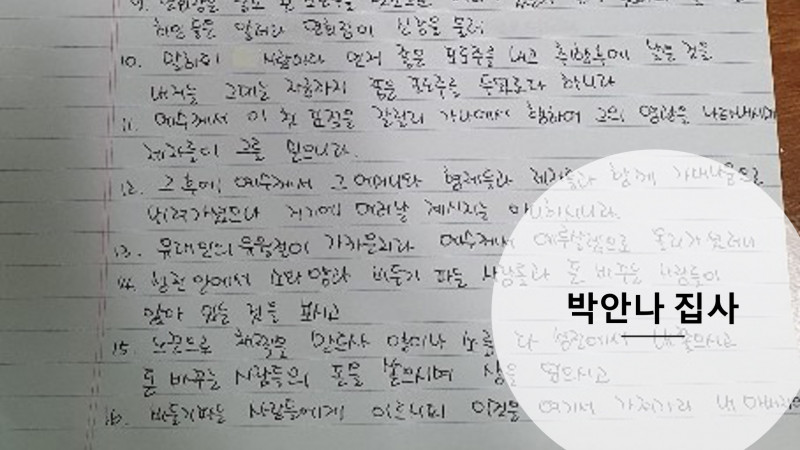 하인들은 알더라 연회장이 신랑을 불러
10. 말하되 사람마다 먼저 좋은 포도주를 내고 취한후에 낮은 것을
내거늘 그대는 지금까지 좋은 포도주를 두었도다 하니라
11. 예수께서 이 첫 표적을 갈릴리 가나에서 행하여 그의 영광을 나타내시매
제자들이 그를 믿으니라.
12. 그 후에 예수께서 그 어머니와 형제들과 제자들과 함께 가버나움으로
내려가셨으나 거기에 여러날 계시지는 아니하시니라.
13. 유대인의 유월절이 가까운지라 예수께서 예루살렘으로 올라가셨더니
14. 성전 안에서 소와 양과 비둘기 파는 사람들과 돈 바꾸는 사람들이
앉아 있는 것을 보시고
박안나 집사
15. 노끈으로 채찍을 만드사 양이나 소를 다 성전에서 내쫓으시고
돈 바꾸는 사람들의 돈을 쏟으시며 상을 엎으시고
16. 비둘기파는 사람들에게 이르시되 이것을 여기서 가져가라 내 아버지